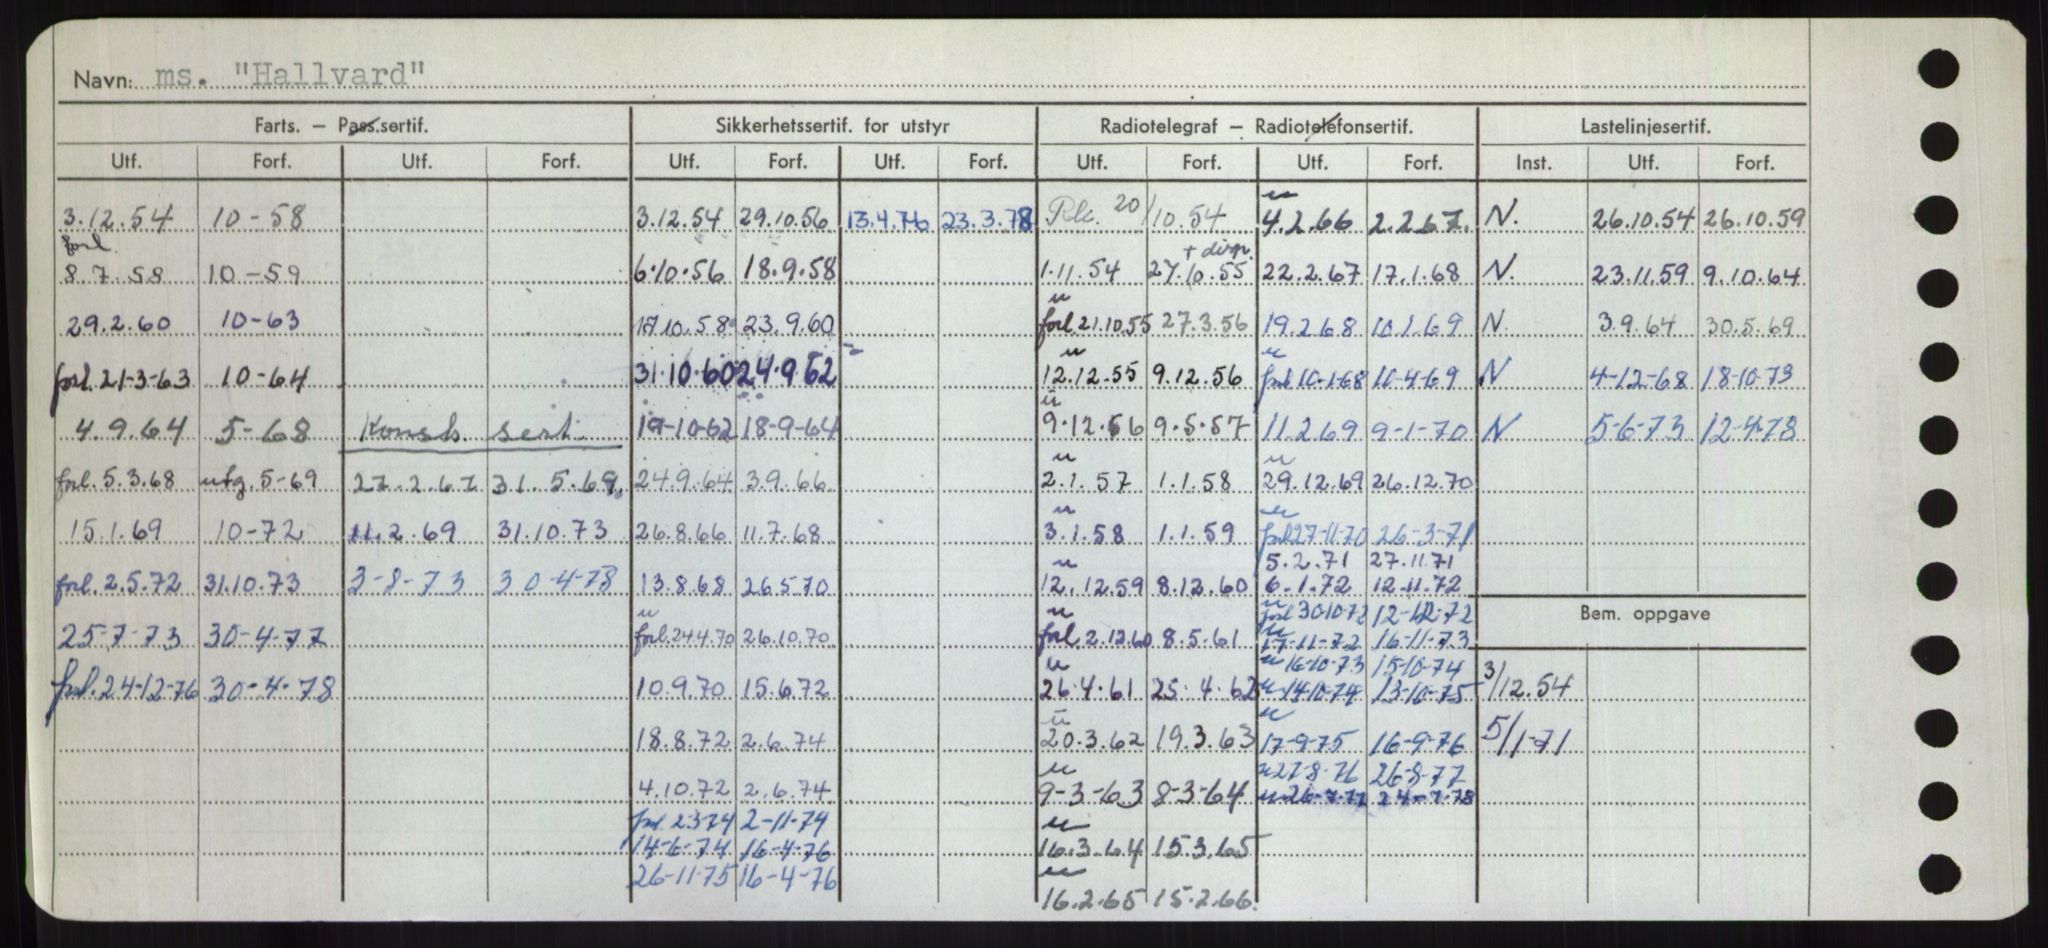 Navn: ms. "Hallvard"
Farts. – Pass.sertif. Sikkerhetssertif. for utstyr Radiotelegraf – Radiotelefonsertif. Lastelinjesertif.
Utf. Forf. Utf. Forf. Utf. Forf. Utf. Forf. Utf. Forf. Utf. Forf. Inst. Utf. Forf.
3.12.54 10-58 3.12.54 29.10.56 13.4.76 23.3.78 20/10.54 u 4.2.66 2.2.67. N. 26.10.54 26.10.59
forl. 8.7.58 10-59 6.10.56 18.9.58 1.11.54 27.10.55 + disp. 22.2.67 17.1.68 N. 23.11.59 9.10.64
29.2.60 10-63 17.10.58 23.9.60 u forl. 21.10.55 27.3.56 19.2.68 10.1.69 N. 3.9.64 30.5.69
forl. 21-3-63 10-64 31.10.60 24.9.62 u 12.12.55 9.12.56 u forl 10-1-68 10-4-69 N 4-12-68 18-10-73
4.9.64 5-68 Konstr. sert. 19-10-62 18-9-64 u 9.12.56 9.5.57 11.2.69 9-1-70 N 5-6-73 12-4-78
forl. 5.3.68 utg. 5-69 27.2.67 31.5.69. 24.9.64 3.9.66 u 2.1.57 1.1.58 u 29.12.69 26.12.70
15.1.69 10-72 11.2.69 31.10.73 26.8.66 11.7.68 u 3.1.58 1.1.59 u forl 27-11-70 26-3-71
5.2.71 27.11.71
forl. 2.5.72 31.10.73 3-8-73 30-4-78 13.8.68 26.5.70 u 12.12.59 8.12.60 6.1.72 12.11.72
Bem. oppgave
u forl 30-10-72 12-12-72
25-7-73 30-4-77 u forl. 24.4.70 26.10.70 u forl. 2.12.60 8.5.61 u 17-11-72 16-11-73
u 16-10-73 15-10-74
forl. 24-12-76 30-4-78 10.9.70 15.6.72 u 26.4.61 25.4.62 u 14-10-74 13-10-75 3/12.54
18.8.72 2.6.74 u 20.3.62 19.3.63 u 17-9-75 16-9-76 5/1-71
u 27-8-76 26-8-77
4.10.72 2.6.74 u 9-3-63 8-3-64 u 26-7-77 24-7-78
forl. 2.3.74 2-11-74
14-6-74 16-4-76 u 16.3.64 15.3.65
26-11-75 16-4-76
u 16.2.65 15.2.66.